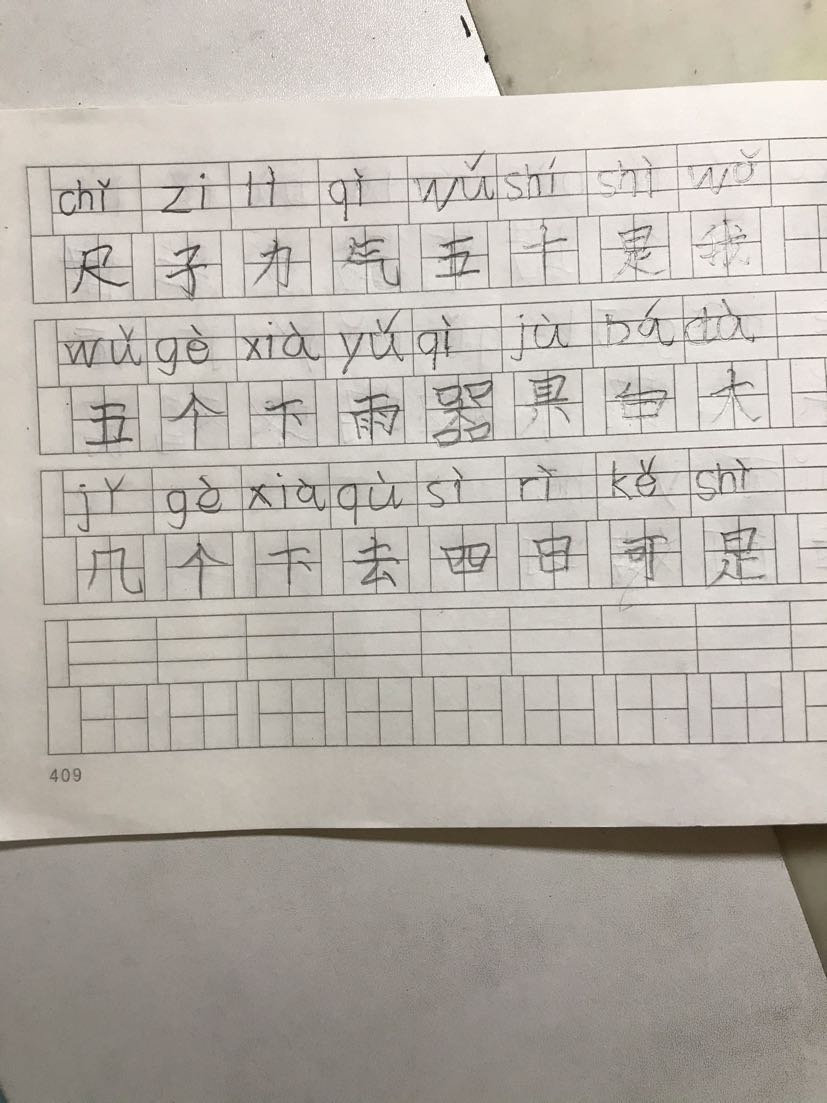 chǐ zi lì qì wǔ shí shì wǒ
尺 子 力 气 五 十 是 我
wǔ gè xià yǔ qì jù bá dà
五 个 下 雨 器 具 大
jǐ gè xià qù sì rì kě shì
几 个 下 去 四 日 可 是
409